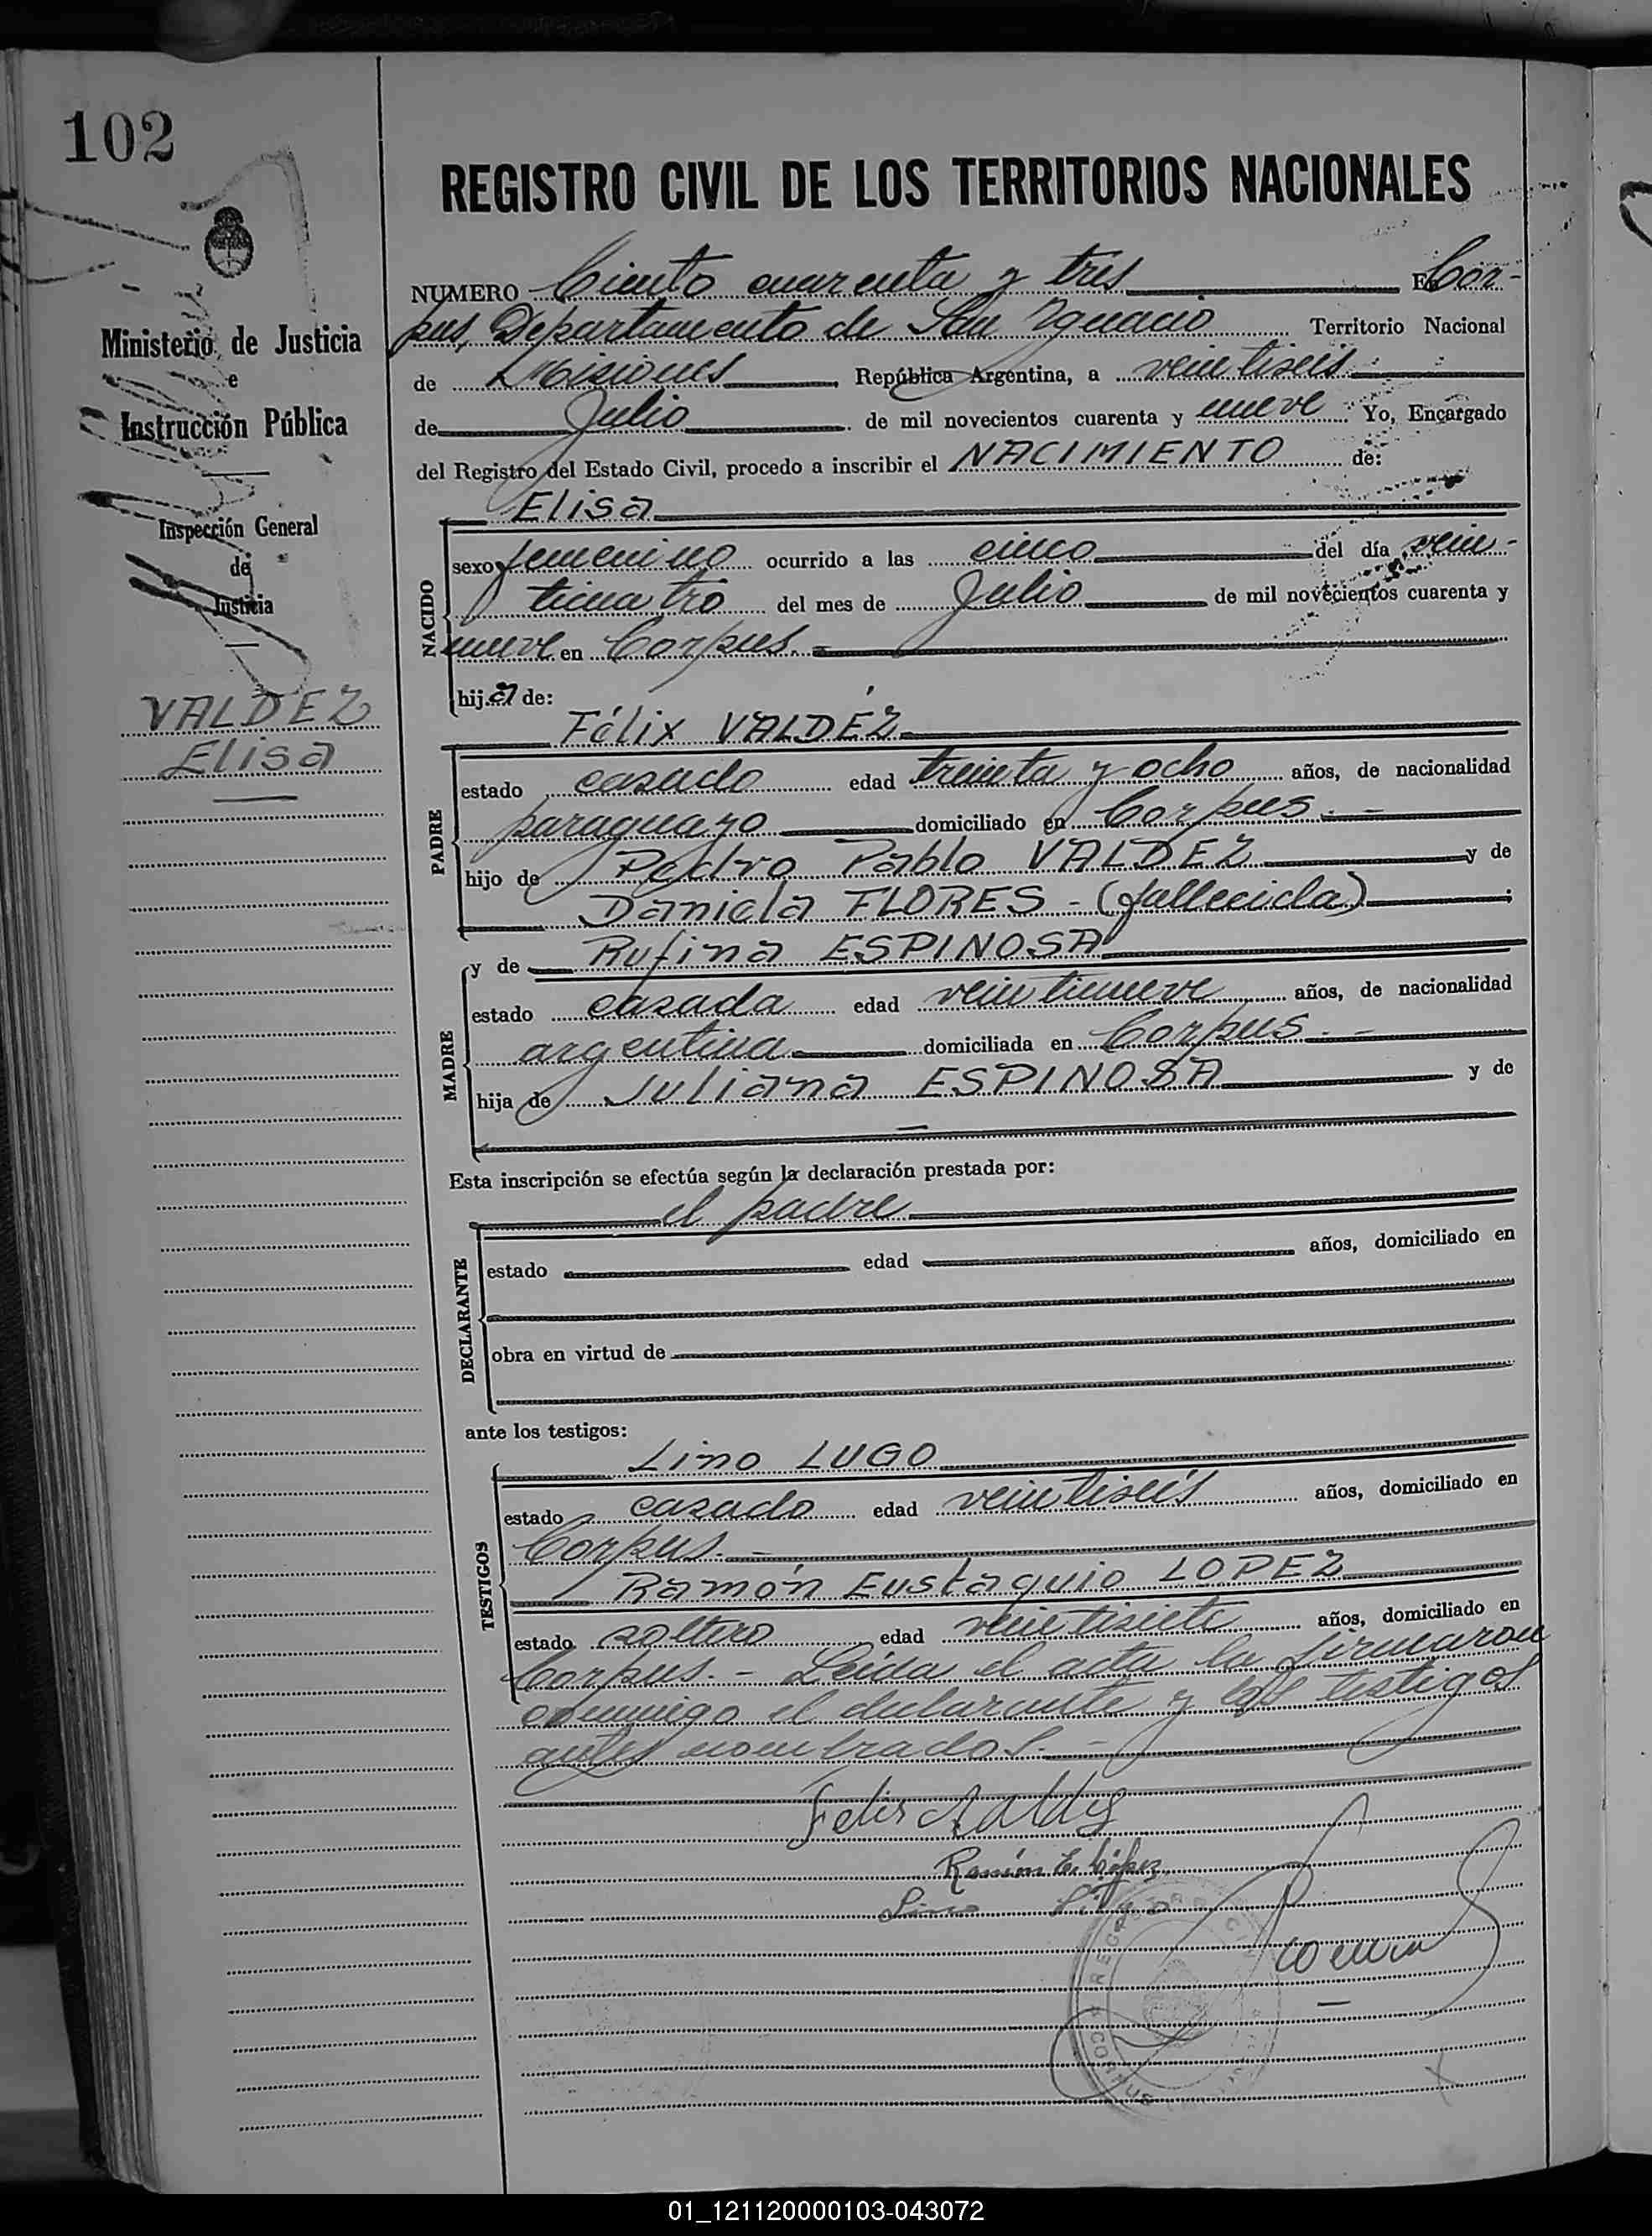 102
REGISTRO CIVIL DE LOS TERRITORIOS NACIONALES
NUMERO Ciento cuarenta y tres En Cor-
pus, Departamento de San Ygnacio Territorio Nacional
de Misiones República Argentina, a veintiseis
de Julio de mil novecientos cuarenta y nueve Yo, Encargado
del Registro del Estado Civil, procedo a inscribir el NACIMIENTO de:
Elisa
sexo femenino ocurrido a las cinco del día vein-
ticuatro del mes de Julio de mil novecientos cuarenta y
nueve en Corpus.
hija de:
NACIDO
Félix VALDÉZ
estado casado edad treinta y ocho años, de nacionalidad
paraguayo domiciliado en Corpus. -
hijo de Pedro Pablo VALDEZ y de
Daniela FLORES - (fallecida)
PADRE
y de Rufina ESPINOSA
estado casada edad veintinueve años, de nacionalidad
argentina domiciliada en Corpus. -
hija de Juliana ESPINOSA y de
MADRE
Esta inscripción se efectúa según la declaración prestada por:
el padre
estado edad años, domiciliado en
obra en virtud de
DECLARANTE
ante los testigos:
Lino LUGO
estado casado edad veintiseis años, domiciliado en
Corpus. -
Ramón Eustaquio LOPEZ
estado soltero edad veintisiete años, domiciliado en
TESTIGOS
Corpus. - Leída el acta la firmaron
conmigo el declarante y los testigos
antes nombrados. -
Felis Valdes
Ramón E. López
Lino Lugo
Ministerio de Justicia
e
Instrucción Pública
Inspección General
de
Justicia
VALDEZ
Elisa
01_121120000103-043072